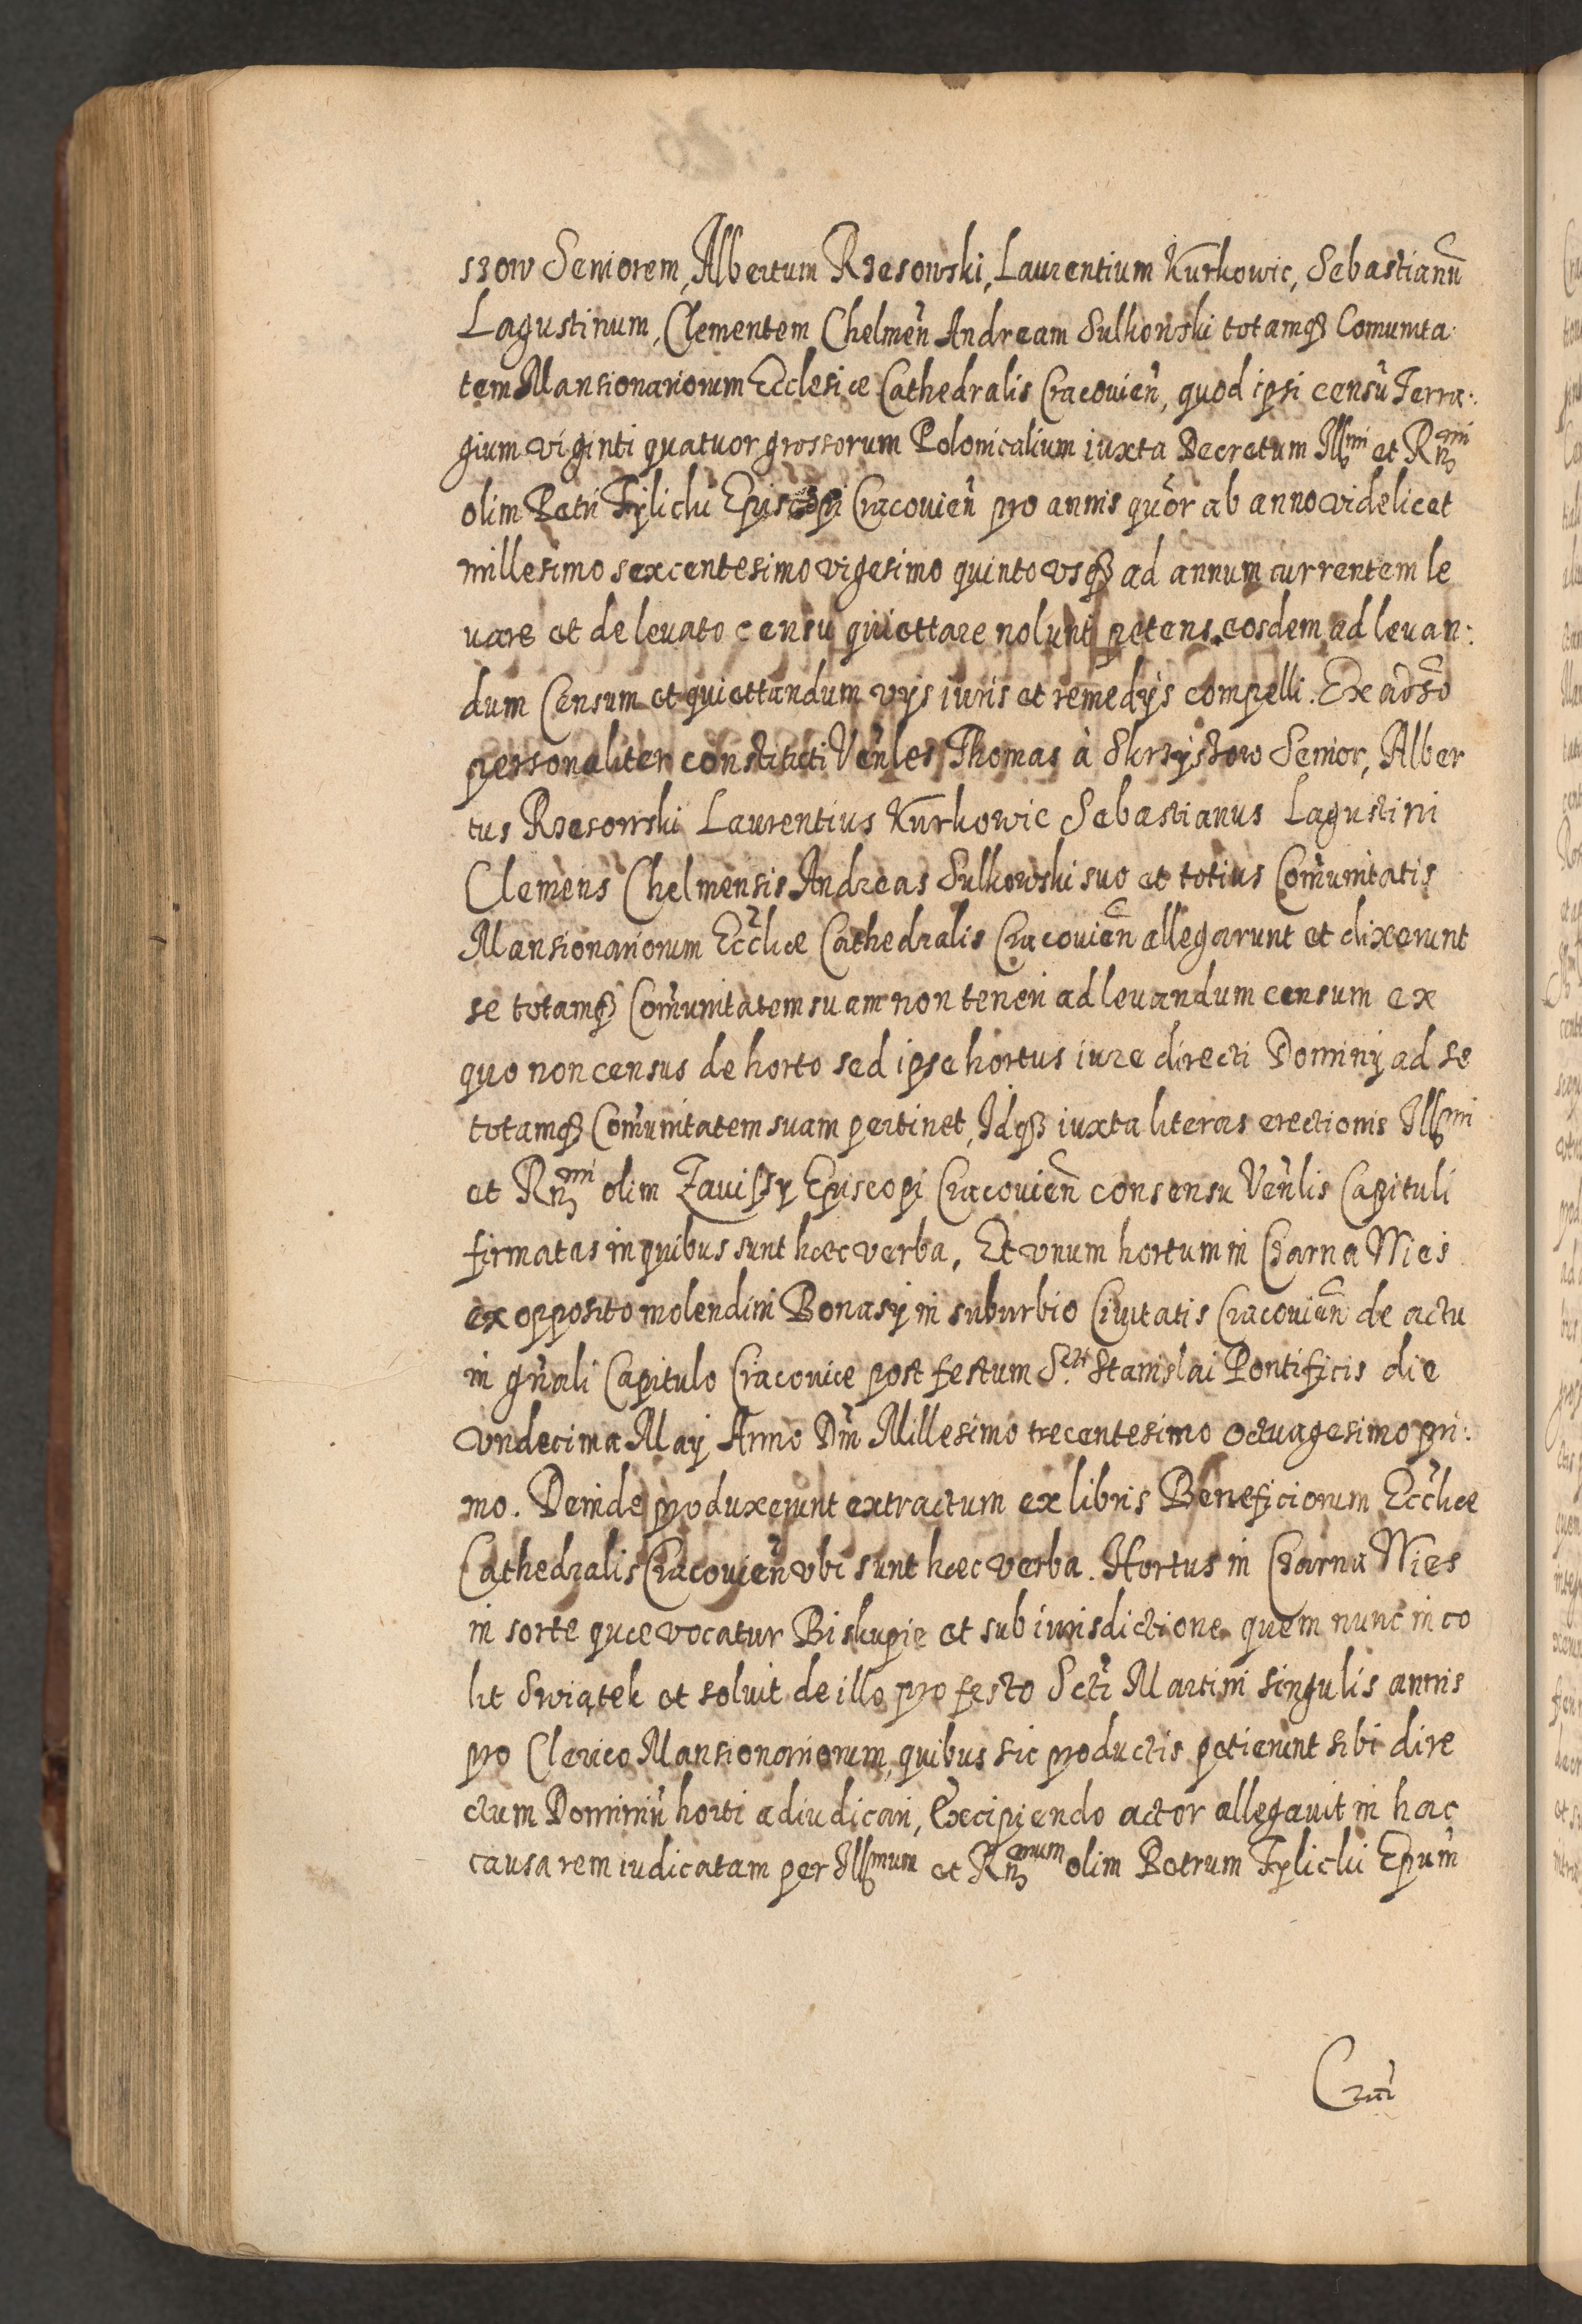 szow Seniorem, Albertum Rzesowski, Laurentium Kurkowic, Sebastianũ
Lagustinum, Clementem Chelmeñ Andream Sulkowski totamqꝫ Comunita
tem Mansionariorum Ecclesiæ Cathedralis Cracovieñ, quod ipsi censũ Terra:
gium viginti quatuor grossorum Polonicalium iuxta Decretum Illmi et Rñmi
olim Petri Tyliclii Episcopi Cracovień pro annis quõr ab anno videlicet
millesimo sexcentesimo vigesimo quinto vsqꝫ ad annum currentem le
vare et de levato censu quiettare nolunt petens eosdem ad levan:
dum Censum et quiettandum vijs iuris et remedijs compelli. Ex adṽso
personaliter constituti Veñles Thomas à Skrzyszow Senior, Alber
tus Rzesowski Laurentius Kurkowic Sebastianus Lagustini
Clemens Chelmensis Andreas Sulkowski suo et totius Com̃unitatis
Mansionariorum Eccl̃iæ Cathedralis Cracovieñ allegarunt et dixerunt
se totamqꝫ Com̃unitatem suam non teneri ad levandum censum ex
quo non census de horto sed ipse hortus iure directi Dominij ad se
totamqꝫ Com̃unitatem suam pertinet, Idqꝫ iuxta literas erectionis Illmi
et Rñmi olim Zaviszy Episcopi Cracovieñ consensu Veñlis Capituli
firmatas in quibus sunt hæc verba, Et vnum hortum in Czarna Wies
ex opposito molendini Bonasij in suburbio Civitatis Cracovieñ de actu
in gñali Capitulo Cracoviæ post festum S.cti Stanislai Pontificis die
vndecima Maij Anno Dñi Millesimo trecentesimo octuagesimo pri:
mo. Deinde produxerunt extractum ex libris Beneficiorum Eccl̃iæ
Cathedralis Cracovieñ vbi sunt hæc verba. Hortus in Czarna Wies
in sorte quæ vocatur Biskupie et sub iurisdictione quem nunc inco
lit Swiątek et solvit de illo pro festo Scti Martini singulis annis
pro Clerico Mansionariorum, quibus sic productis petierunt sibi dire
ctum Dominiũ horti adiudicari, Excipiendo actor allegavit in hac
causa rem iudicatam per Illmum et Rñmum olim Petrum Tyliclii Epum̃